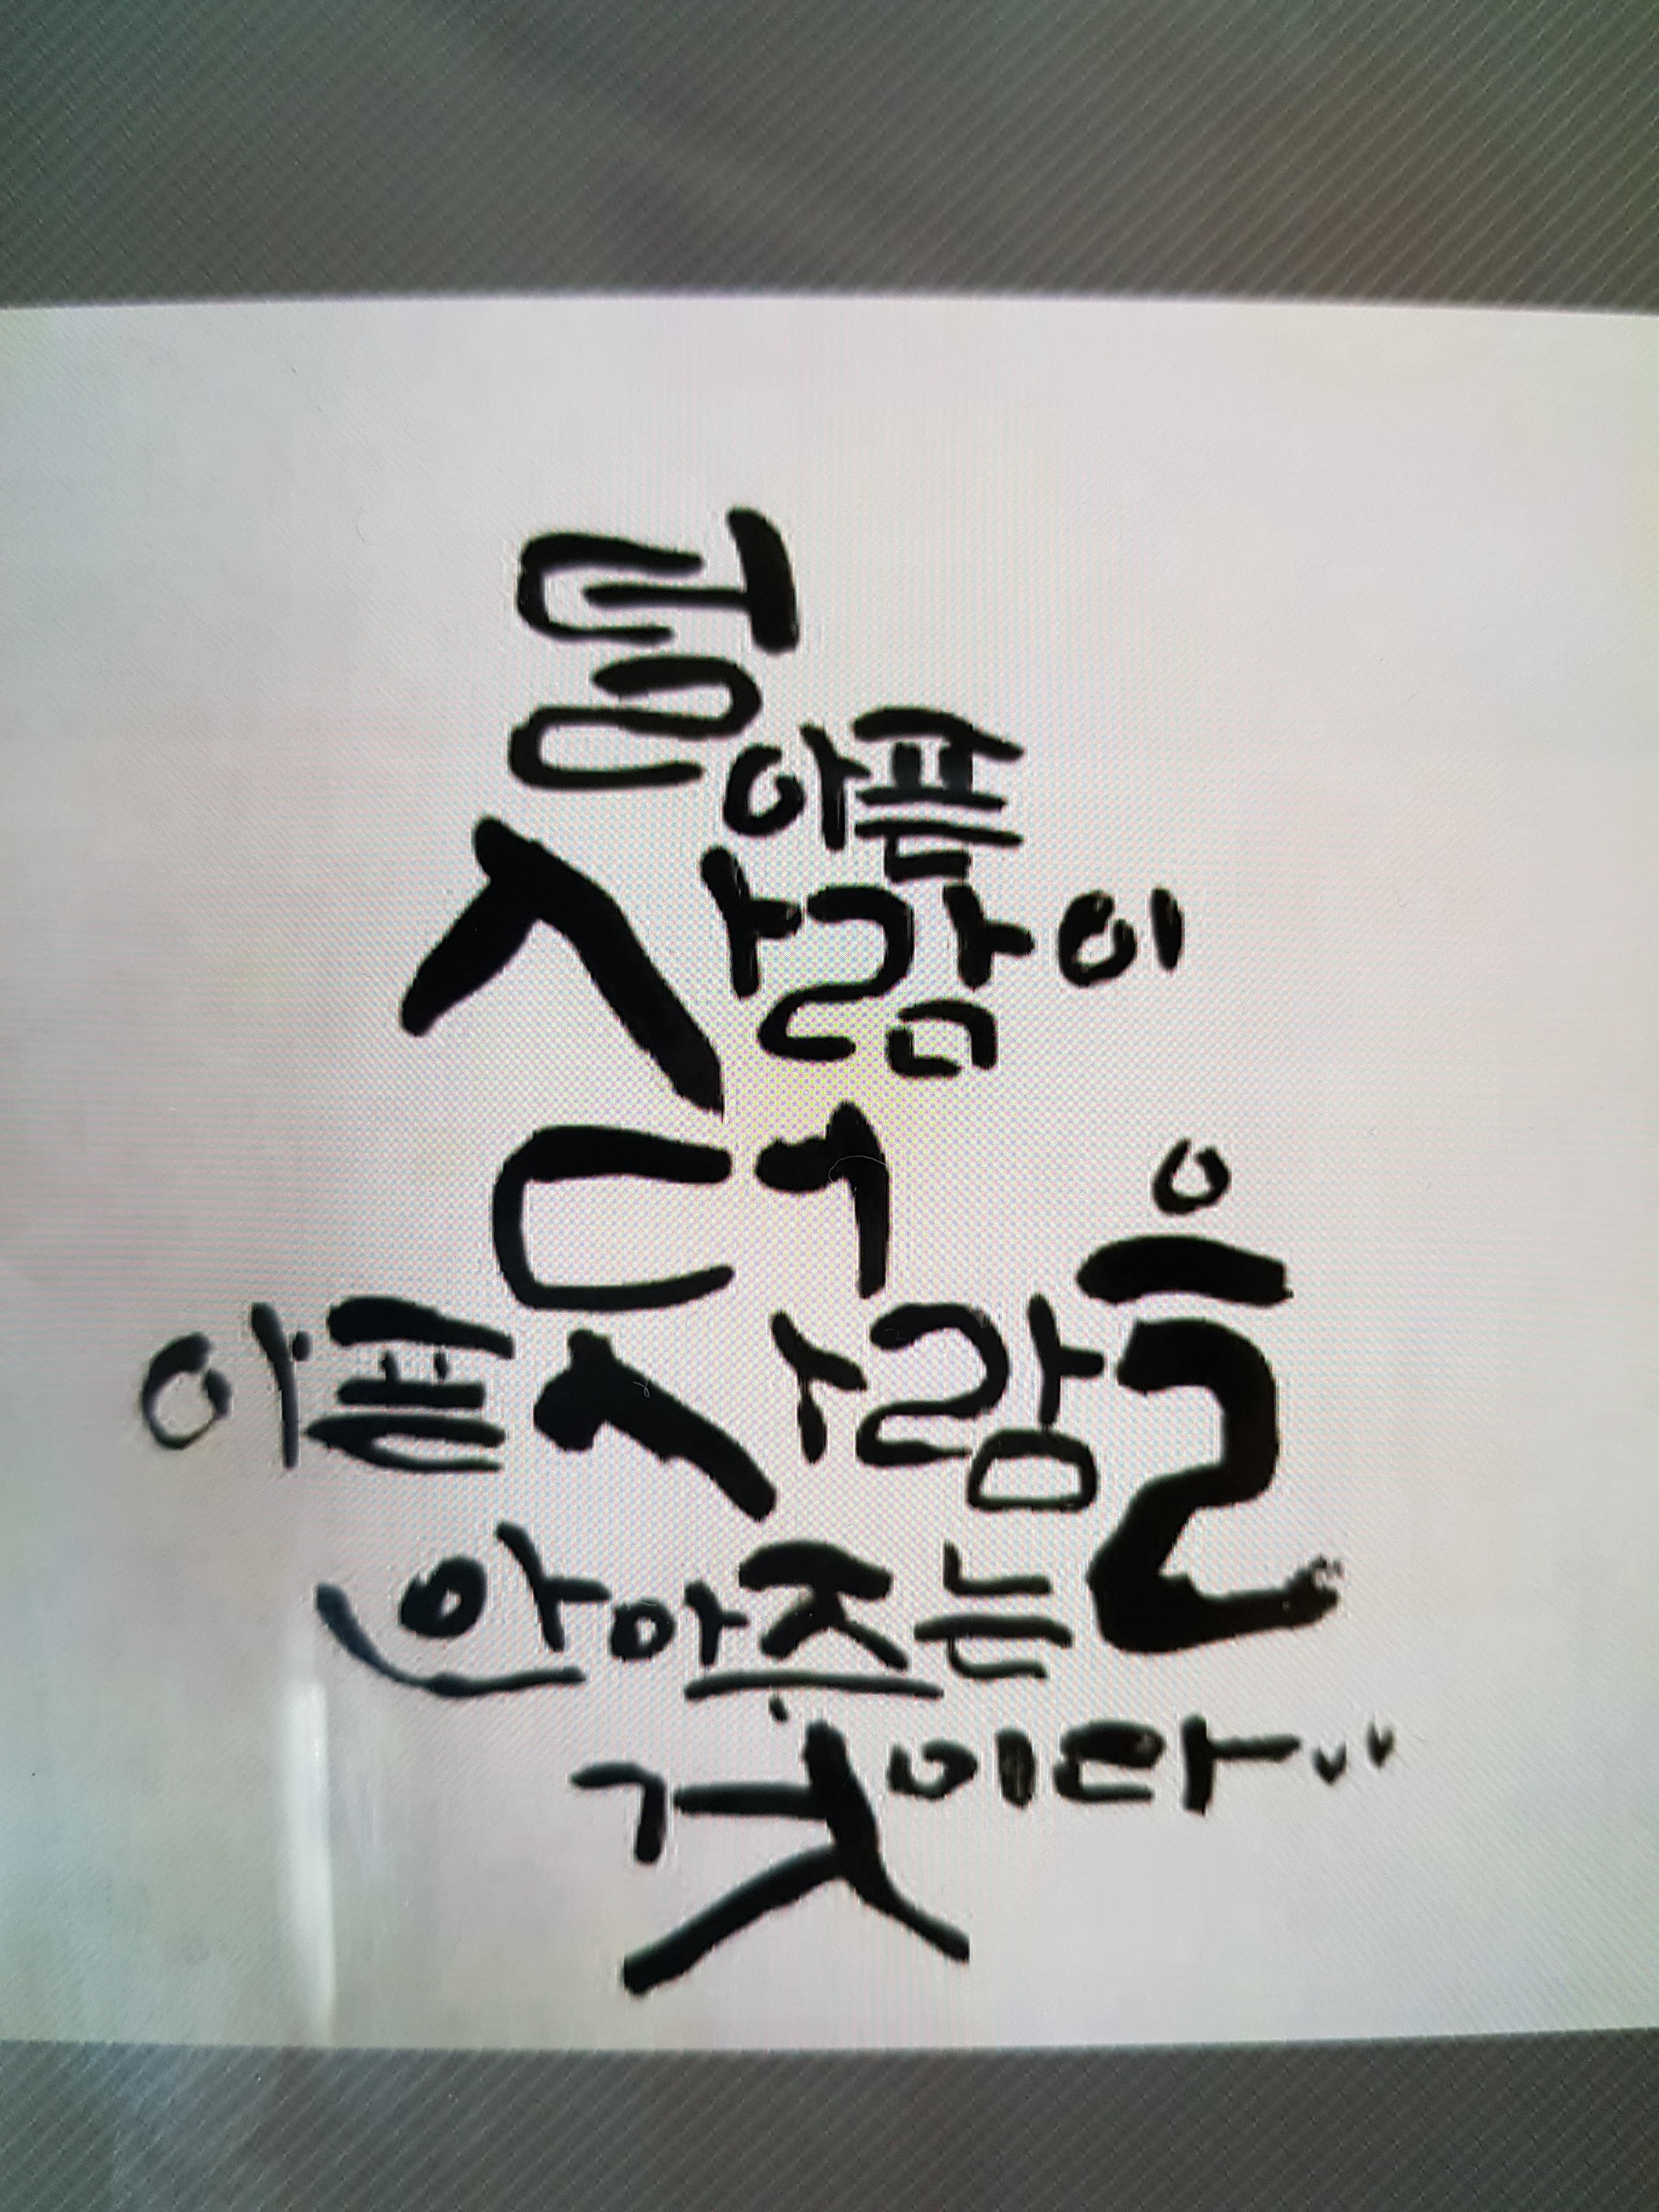 덜 아픈
사람이
더
아픈 사람을
안아주는
것이라..